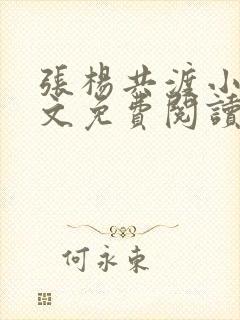 張楊共渡小
文免費閱讀
何永東